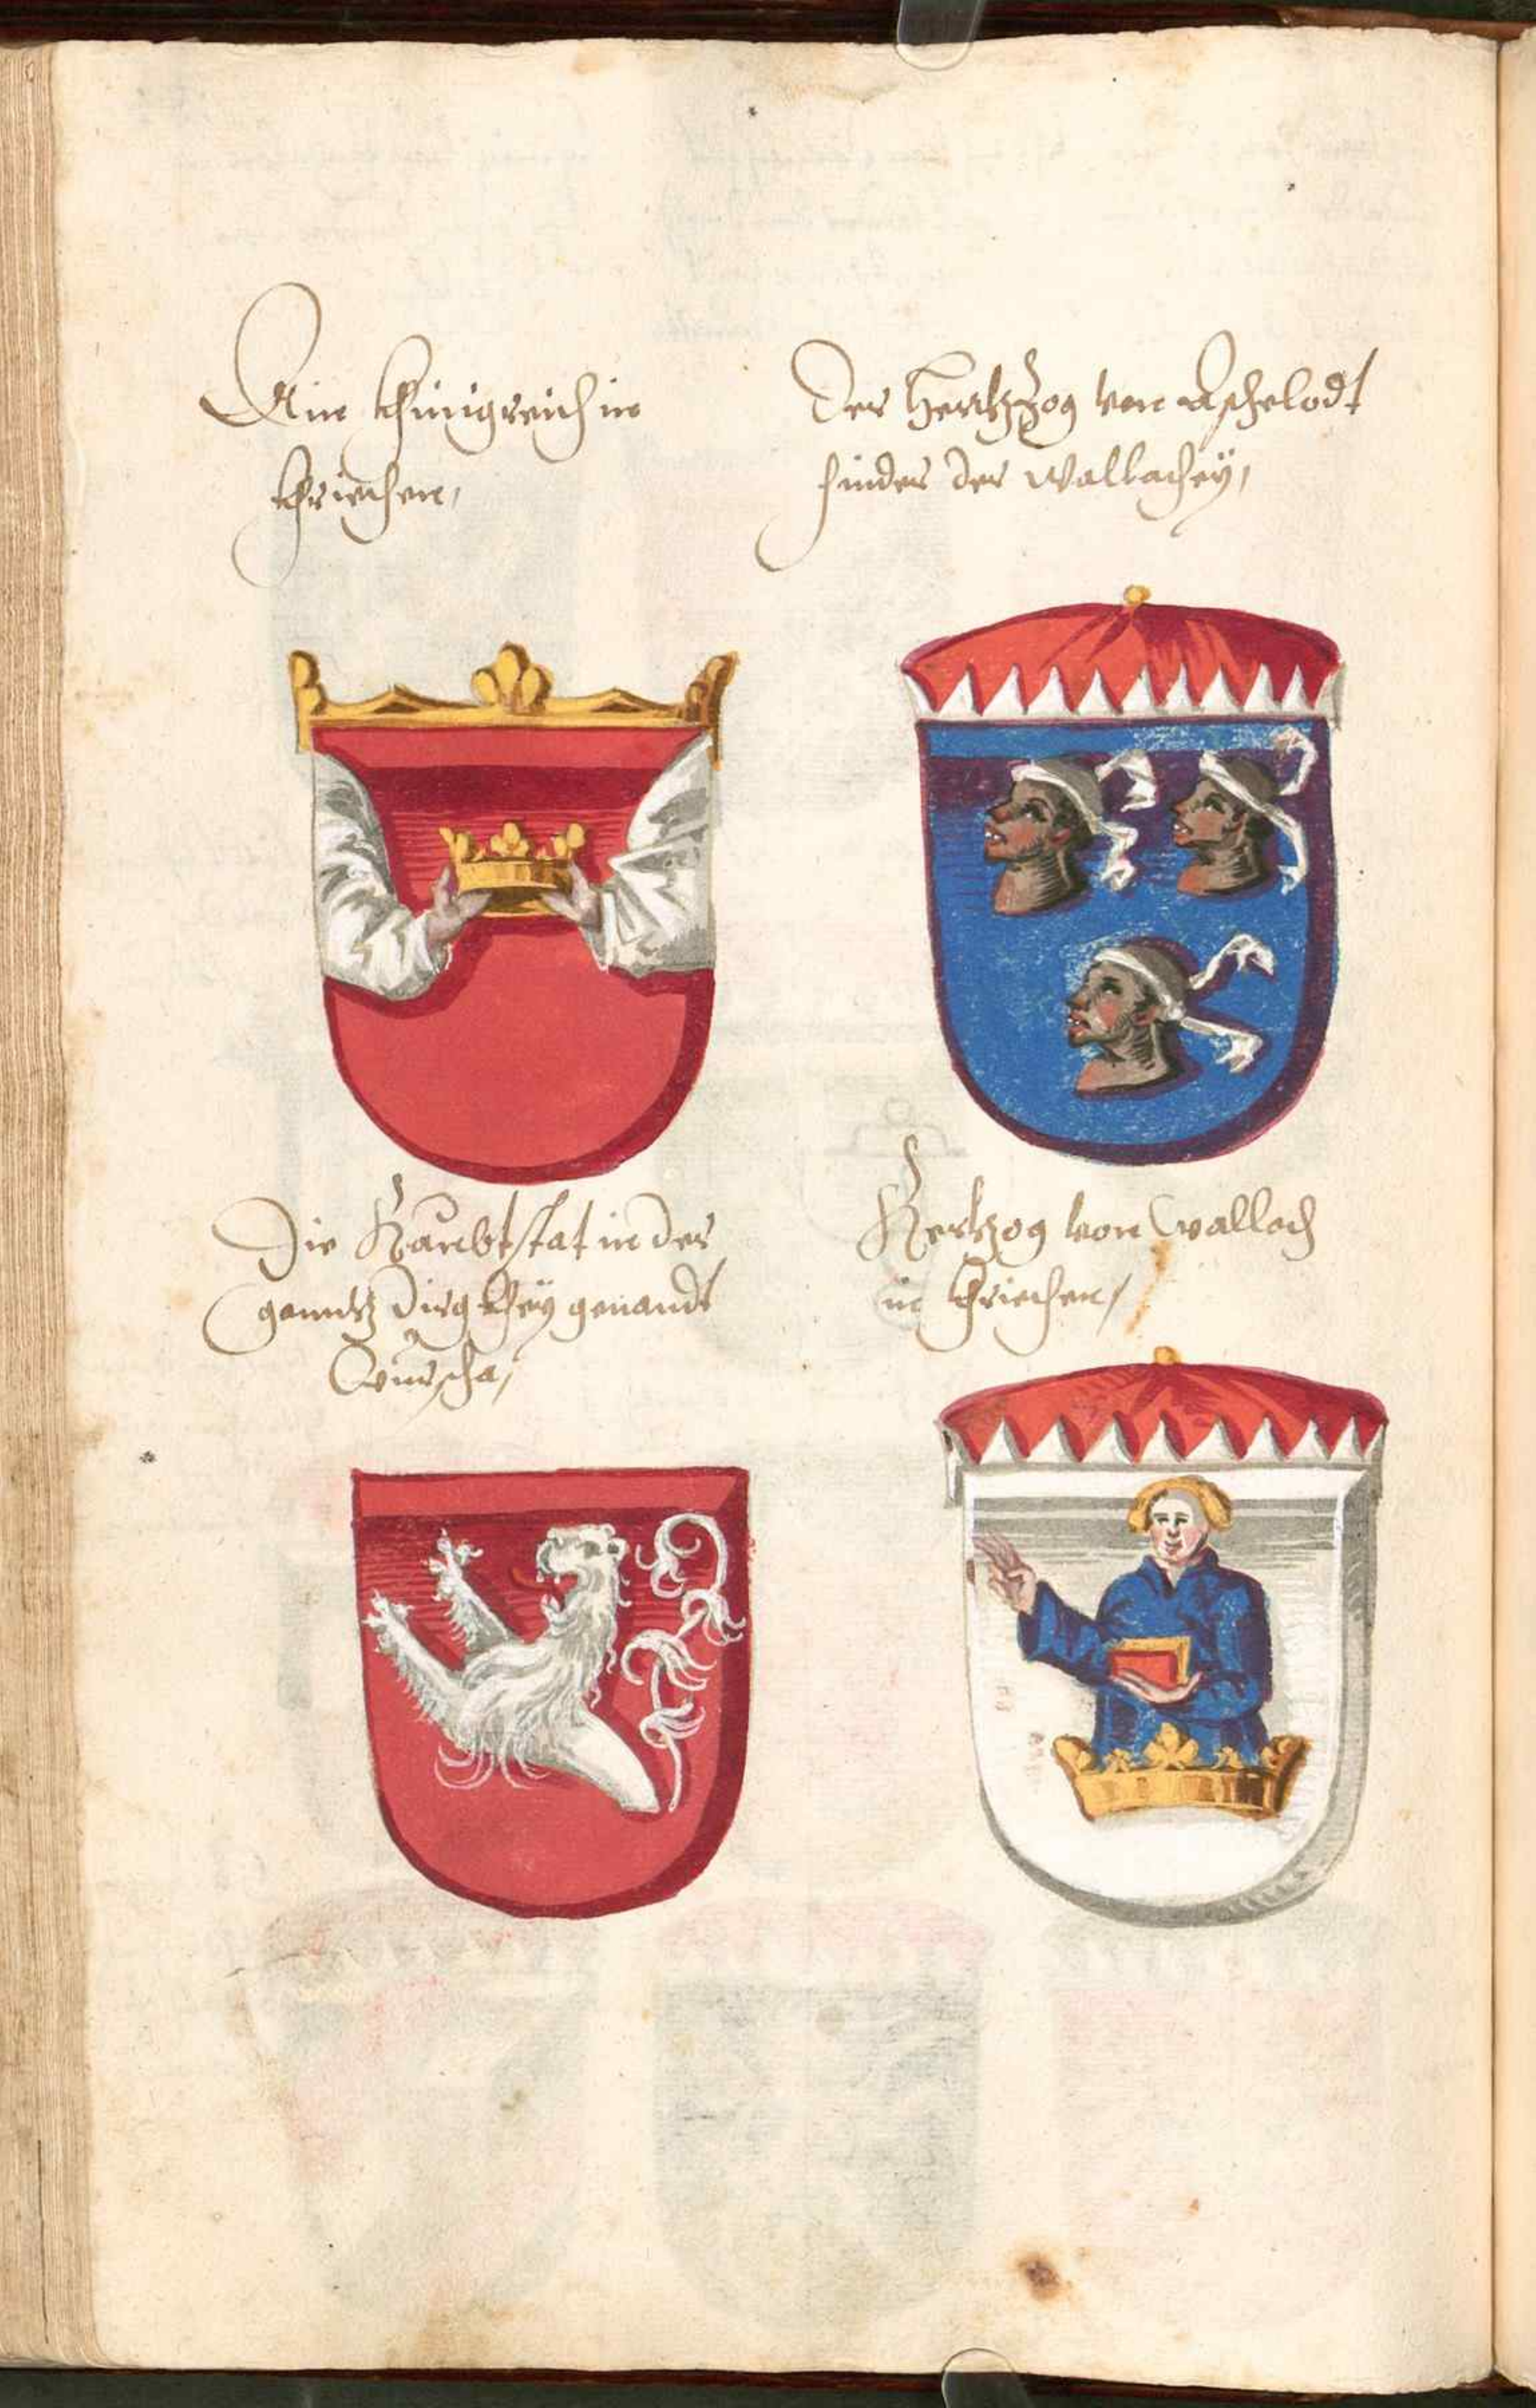 Ain khünigreich in
khriechen,
Der Hertzog von Aschelodt
hinder der Wallachey,
Die Haubtstat in der
ganntz Dürgkhey genandt
Wurscha,
Hertzog von Wallach
in khriechen,